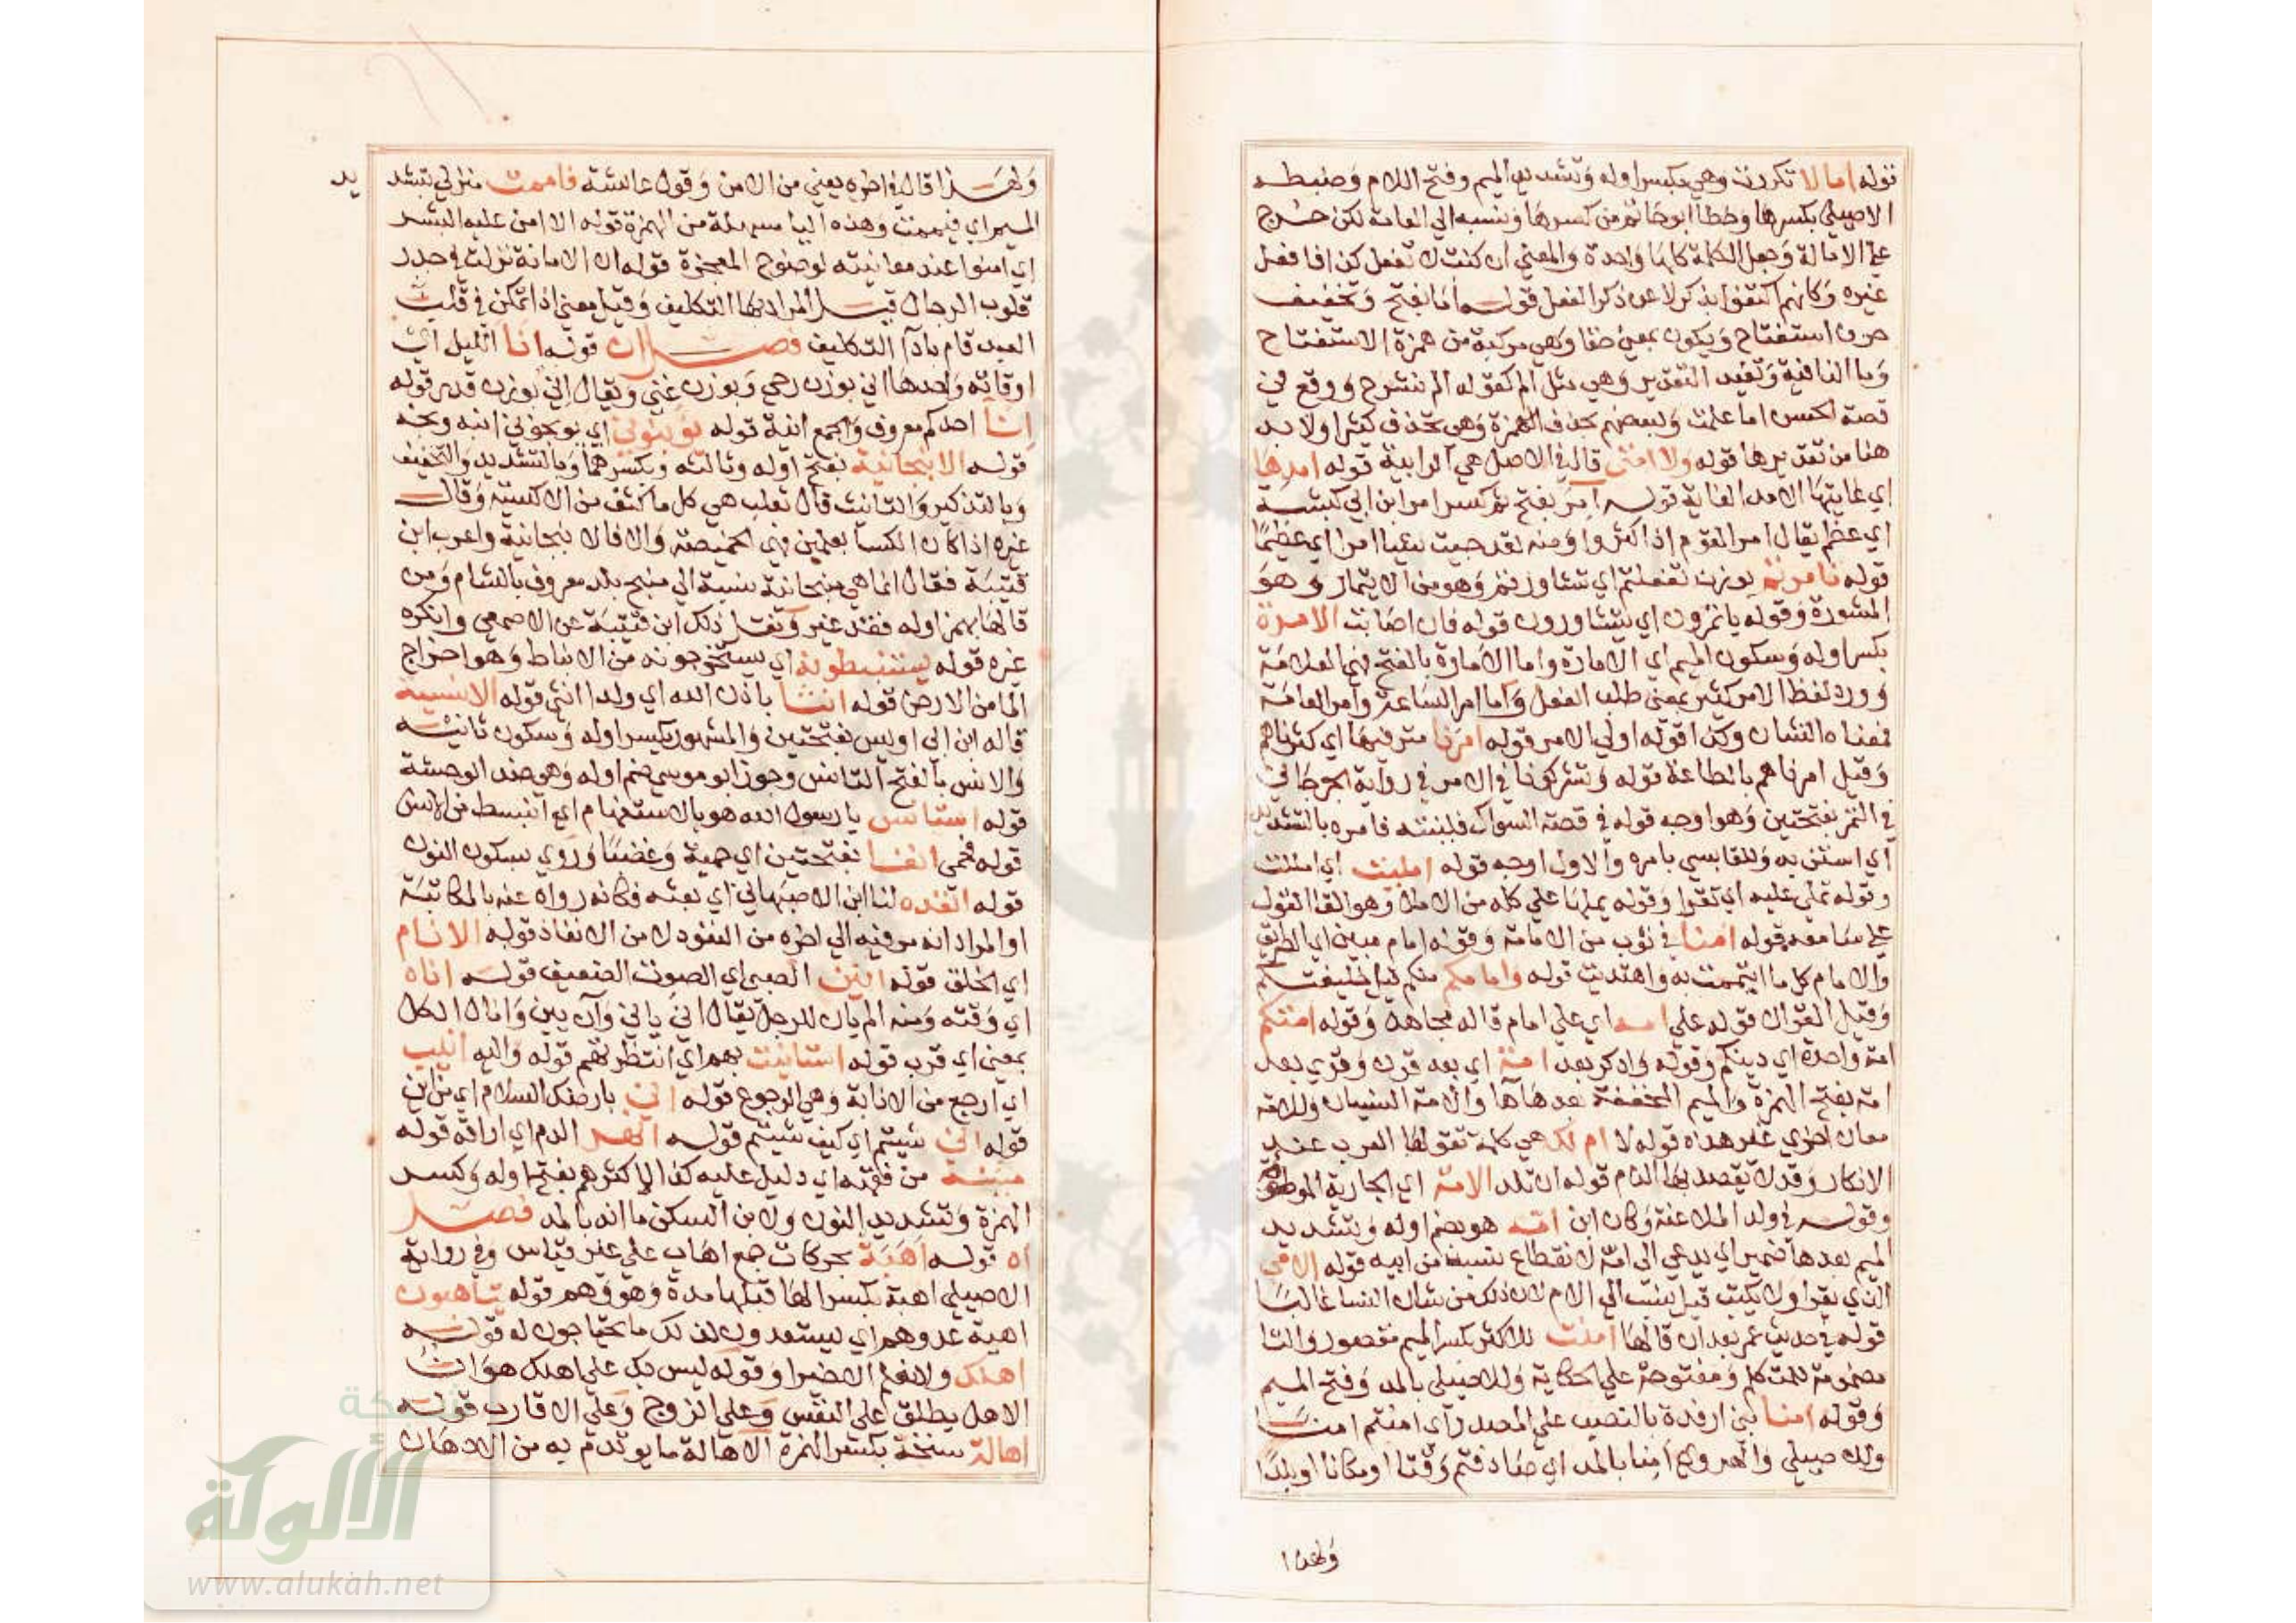 قوله اما لا تكررت وهي بكسر اوله وتشديد الميم وفتح اللام وضبطه
الاصيلي بكسرها وخطا ابو حاتم من كسرها ونسبه الي العامة لكن خرج
علي الامالة وجعل الكلمة كانها واحدة والمعني ان كنت لا تفعل كذا فافعل
غيره وكانهم اكتفوا بذكر لا عن ذكر الفعل قوله اما بفتح وتخفيف
حرف استفتاح ويكون بمعني حقا وهي مركبة من همزة الاستفتاح
وما النافية وتفيد التقدير وهي مثل الم كقوله الم نشرح ووقع في
قصة الحسن اما علمت وبعضهم بحذف الهمزة وهي تحذف كثيرا ولا بد
هنا من تقديرها قوله ولا امتي قال في الاصل هي الرابية قوله امدها
اي غايتها الامد الغاية قوله امر بفتح ثم كسر امر ابن ابي كبشة
اي عظم يقال امر القوم اذا كثروا ومنه لقد جيت شيا امرا اي عظيما
قوله تامرتم بوزن تفعلتم اي تشاورتم وهو من الايتمار وهو
المشورة وقوله ياتمرون اي يتشاورون قوله فان اصابت الامرة
بكسر اوله وسكون الميم اي الامارة واما الامارة بالفتح فهي العلامة
وورد لفظ الامر كثير بمعني طلب الفعل واما امر الساعة وامر العامة
فمعناه الشان وكذا قوله اولي الامر قوله امرنا مترفيها اي كثرناهم
وقيل امرناهم بالطاعة قوله وتشركونا في الامر في رواية الجرجاني
في الثمر بفتحتين وهو اوجه قوله في قصة السواك فلينته فامره بالتشديد
اي استن به وللقابسي بامره والاول اوجه قوله امليت اي امللت
وقوله تملي عليه اي تقرا وقوله يملها علي كله من الاملا وهو القا القول
علي سامعه قوله امنا في ثوب من الامامة وقوله امام مبين اي الطريق
والامام كل ما ايتممت به واهتديت قوله وامامكم منكم قيل خليفتكم
وقيل القران قوله علي امه اي علي امام قاله مجاهد وقوله امتكم
امة واحدة اي دينكم وقوله وادكر بعد امة اي بعد قرن وقري بعد
امه بفتح الهمزة والميم المخففة بعدها ها والامه النسيان وللامه
معان اخري غير هذه قوله لا ام لك هي كلمة تقولها العرب عند
الانكار وقد لا يقصد بها الذم قوله ان تلد الامة اي الجارية الموطوة
وقوله في ولد الملاعنة وكان ابن امه هو بضم اوله وبتشديد
الميم بعدها ضمير اي يدعي الي امه لانقطاع نسبه من ابيه قوله الامي
الذي يقرا ولا يكتب قيل ينسب الي الام لان ذلك من شان النسا غالبا
قوله في حديث عمر بعد ان قالها امنت للاكثر بكسر الميم مقصور والتا
مضمومة للمتكلم ومفتوحة علي الحكاية وللاصيلي بالمد وفتح الميم
وقوله امنا بني ارفدة بالنصب علي المصدر اي امنتم امنا
وللاصيلي والهروي امنا بالمد اي صادفتم وقتا او مكانا او بلدا
ولهذا
ولهذا قال في اخره يعني من الامن وقول عايشة فاممت منزلي بتشديد
الميم اي فيممت وهذه اليا مسهلة من الهمزة قوله الا امن عليه البشر
اي امنوا عند معاينته لوضوح المعجزة قوله ان الامانة نزلت في جدر
قلوب الرجال قيل المراد بها التكليف وقيل معني اذا تمكن في قلب
العبد قام باداا التكليف فصل ان قوله انا الليل اي
اوقاته واحدها اني بوزن رحي وبوزن غني ويقال اني بوزن قدر قوله
انا احدكم معروف والجمع انية قوله يؤنبوني اي يوبخوني انبه وبخه
قوله الانبجانية بفتح اوله وثالثه وبكسرهما وبالتشديد والتخفيف
وبالتذكير والتانيث قال ثعلب هي كل ما كثف من الاكسية وقال
غيره اذا كان الكسا بعلمين فهي الخميصة والا فالانبجانية واعرب ابن
قتيبة فقال انما هي منبجانية نسبة الي منبج بلد معروف بالشام ومن
قالها بهمز اوله فقد غير ونقل ذلك ابن قتيبة عن الاصمعي وانكره
غيره قوله يستنبطونه اي يستخرجونه من الانباط وهو اخراج
الما من الارض قوله انثا باذن الله اي ولدا انثي قوله الانسية
قاله ابن ابي اويس بفتحتين والمشهور بكسر اوله وسكون ثانيه
والانس بالفتح التانس وجوز ابو موسي ضم اوله وهي ضد الوحشة
قوله استانس يا رسول الله هو بالاستفهام اي انبسط من الانس
قوله فحمي انفا بفتحتين اي حمية وغضبا وروي بسكون النون
قوله انفذه لنا ابن الاصبهاني اي بعثه فكانه رواه عنه بالمكاتبة
او المراد انه مر فيه الي اخره من النفوذ لا من الانفاذ قوله الانام
اي الخلق قوله انين الصبي اي الصوت الضعيف قوله اناه
اي وقته ومنه الم يان للرجل يقال اني ياني وآن يين وانال الكل
بمعني اي قرب قوله استانيت بهم اي انتظرتهم قوله واليه انيب
اي ارجع من الانابة وهي الرجوع قوله اني بارضك السلام اي من اين
قوله اني شيتم اي كيف شيتم قوله انهر الدم اي اراقه قوله
مئنة من فقهه اي دليل عليه كذا لاكثرهم بفتح اوله وكسر
الهمزة وتشديد النون ولابن السكن مائنه بالمد فصل
اه قوله اهبة بحركات جمع اهاب علي غير قياس وفي رواية
الاصيلي اهبة بكسر الها قبلها مدة وهو وهم قوله يتاهبون
اهبة عدوهم اي ليستعدون لذلك ما يحتاجون له قوله
اهلك ولا نعلم الا خيرا وقوله ليس بك علي اهلك هوان
الاهل يطلق علي النفس وعلي الزوج وعلي الاقارب قوله
اهالة سنخة بكسر الهمزة الاهالة ما يوتدم به من الادهان
شبكة
الألوكة
www.alukah.net